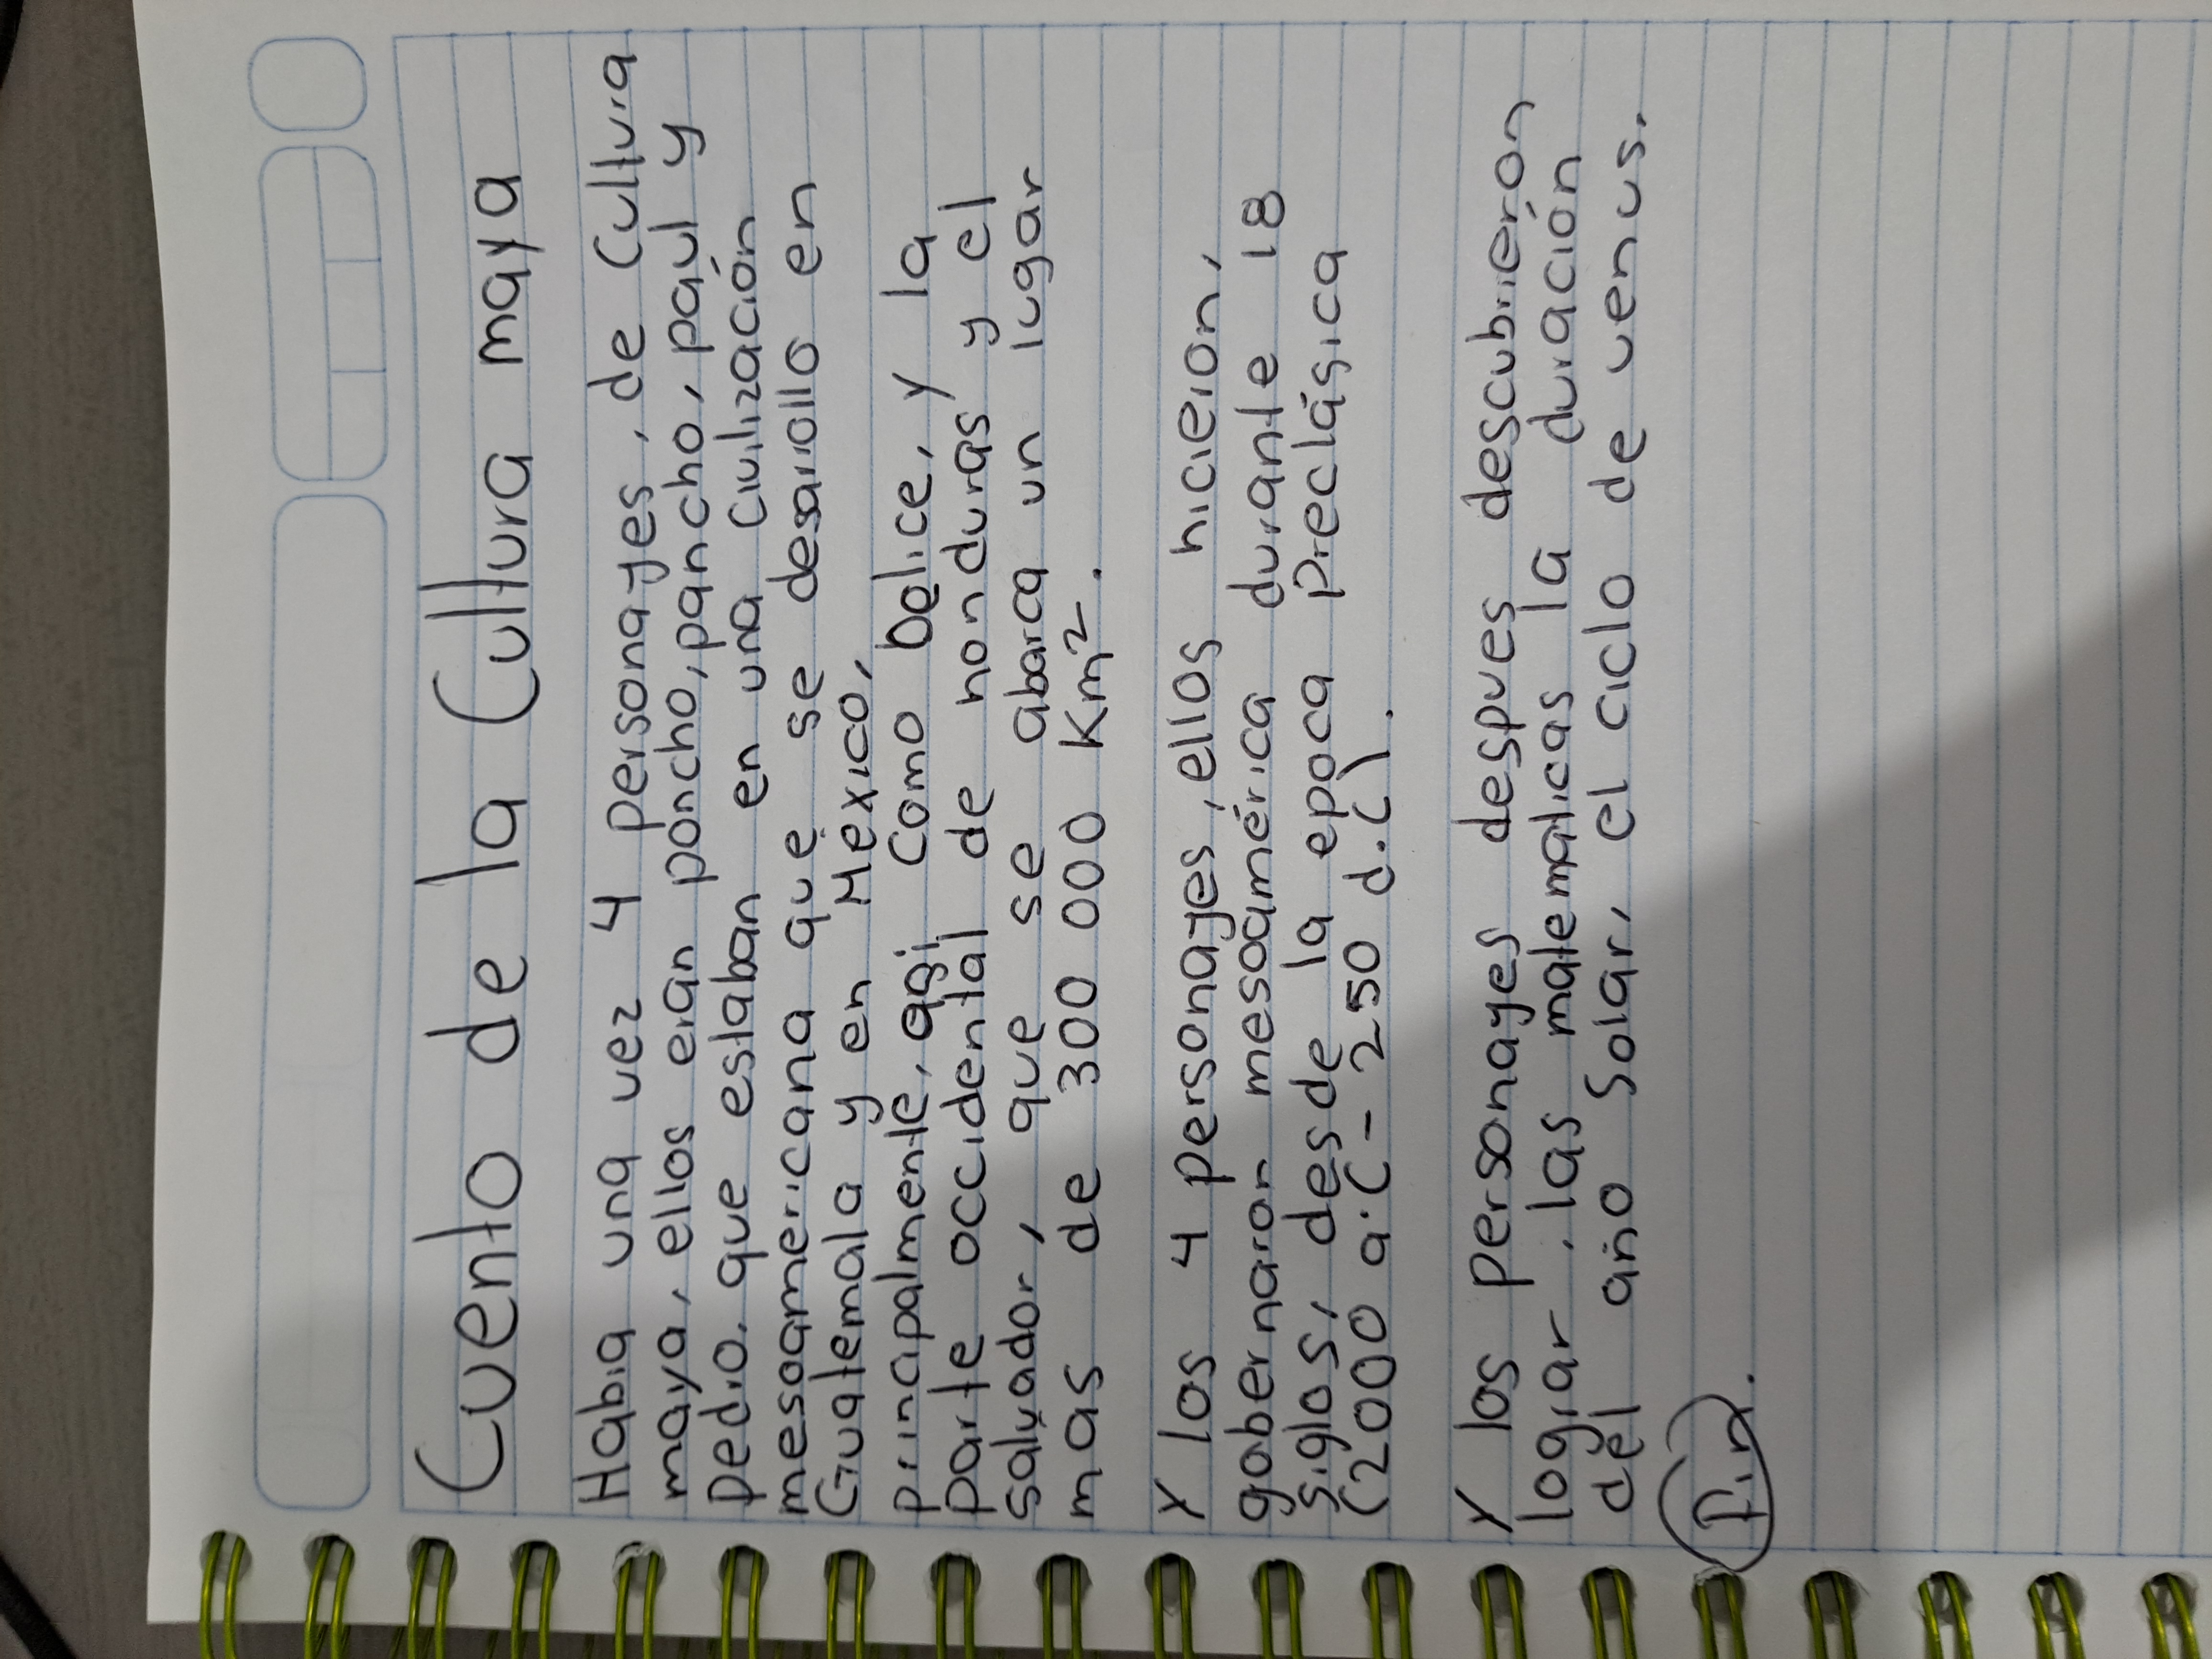 Cuento de la Cultura maya
Habia una vez 4 personayes, de Cultura
maya, ellos eran poncho, pancho, paul y
pedro, que estaban en una civilización
mesoamericana que se desarollo en
Guatemala y en México,
principalmente, asi como belice, y la
parte occidental de honduras y el
salvador, que se abarca un lugar
mas de 300 000 Km².
Y los 4 personayes, ellos hicieron,
gobernaron mesoamérica durante 18
siglos, desde la epoca preclásica
(2000 a.C - 250 d.C).
Y los personayes despues descubrieron
lograr, las matematicas la duración
del año Solar, el ciclo de venus.
Fin.